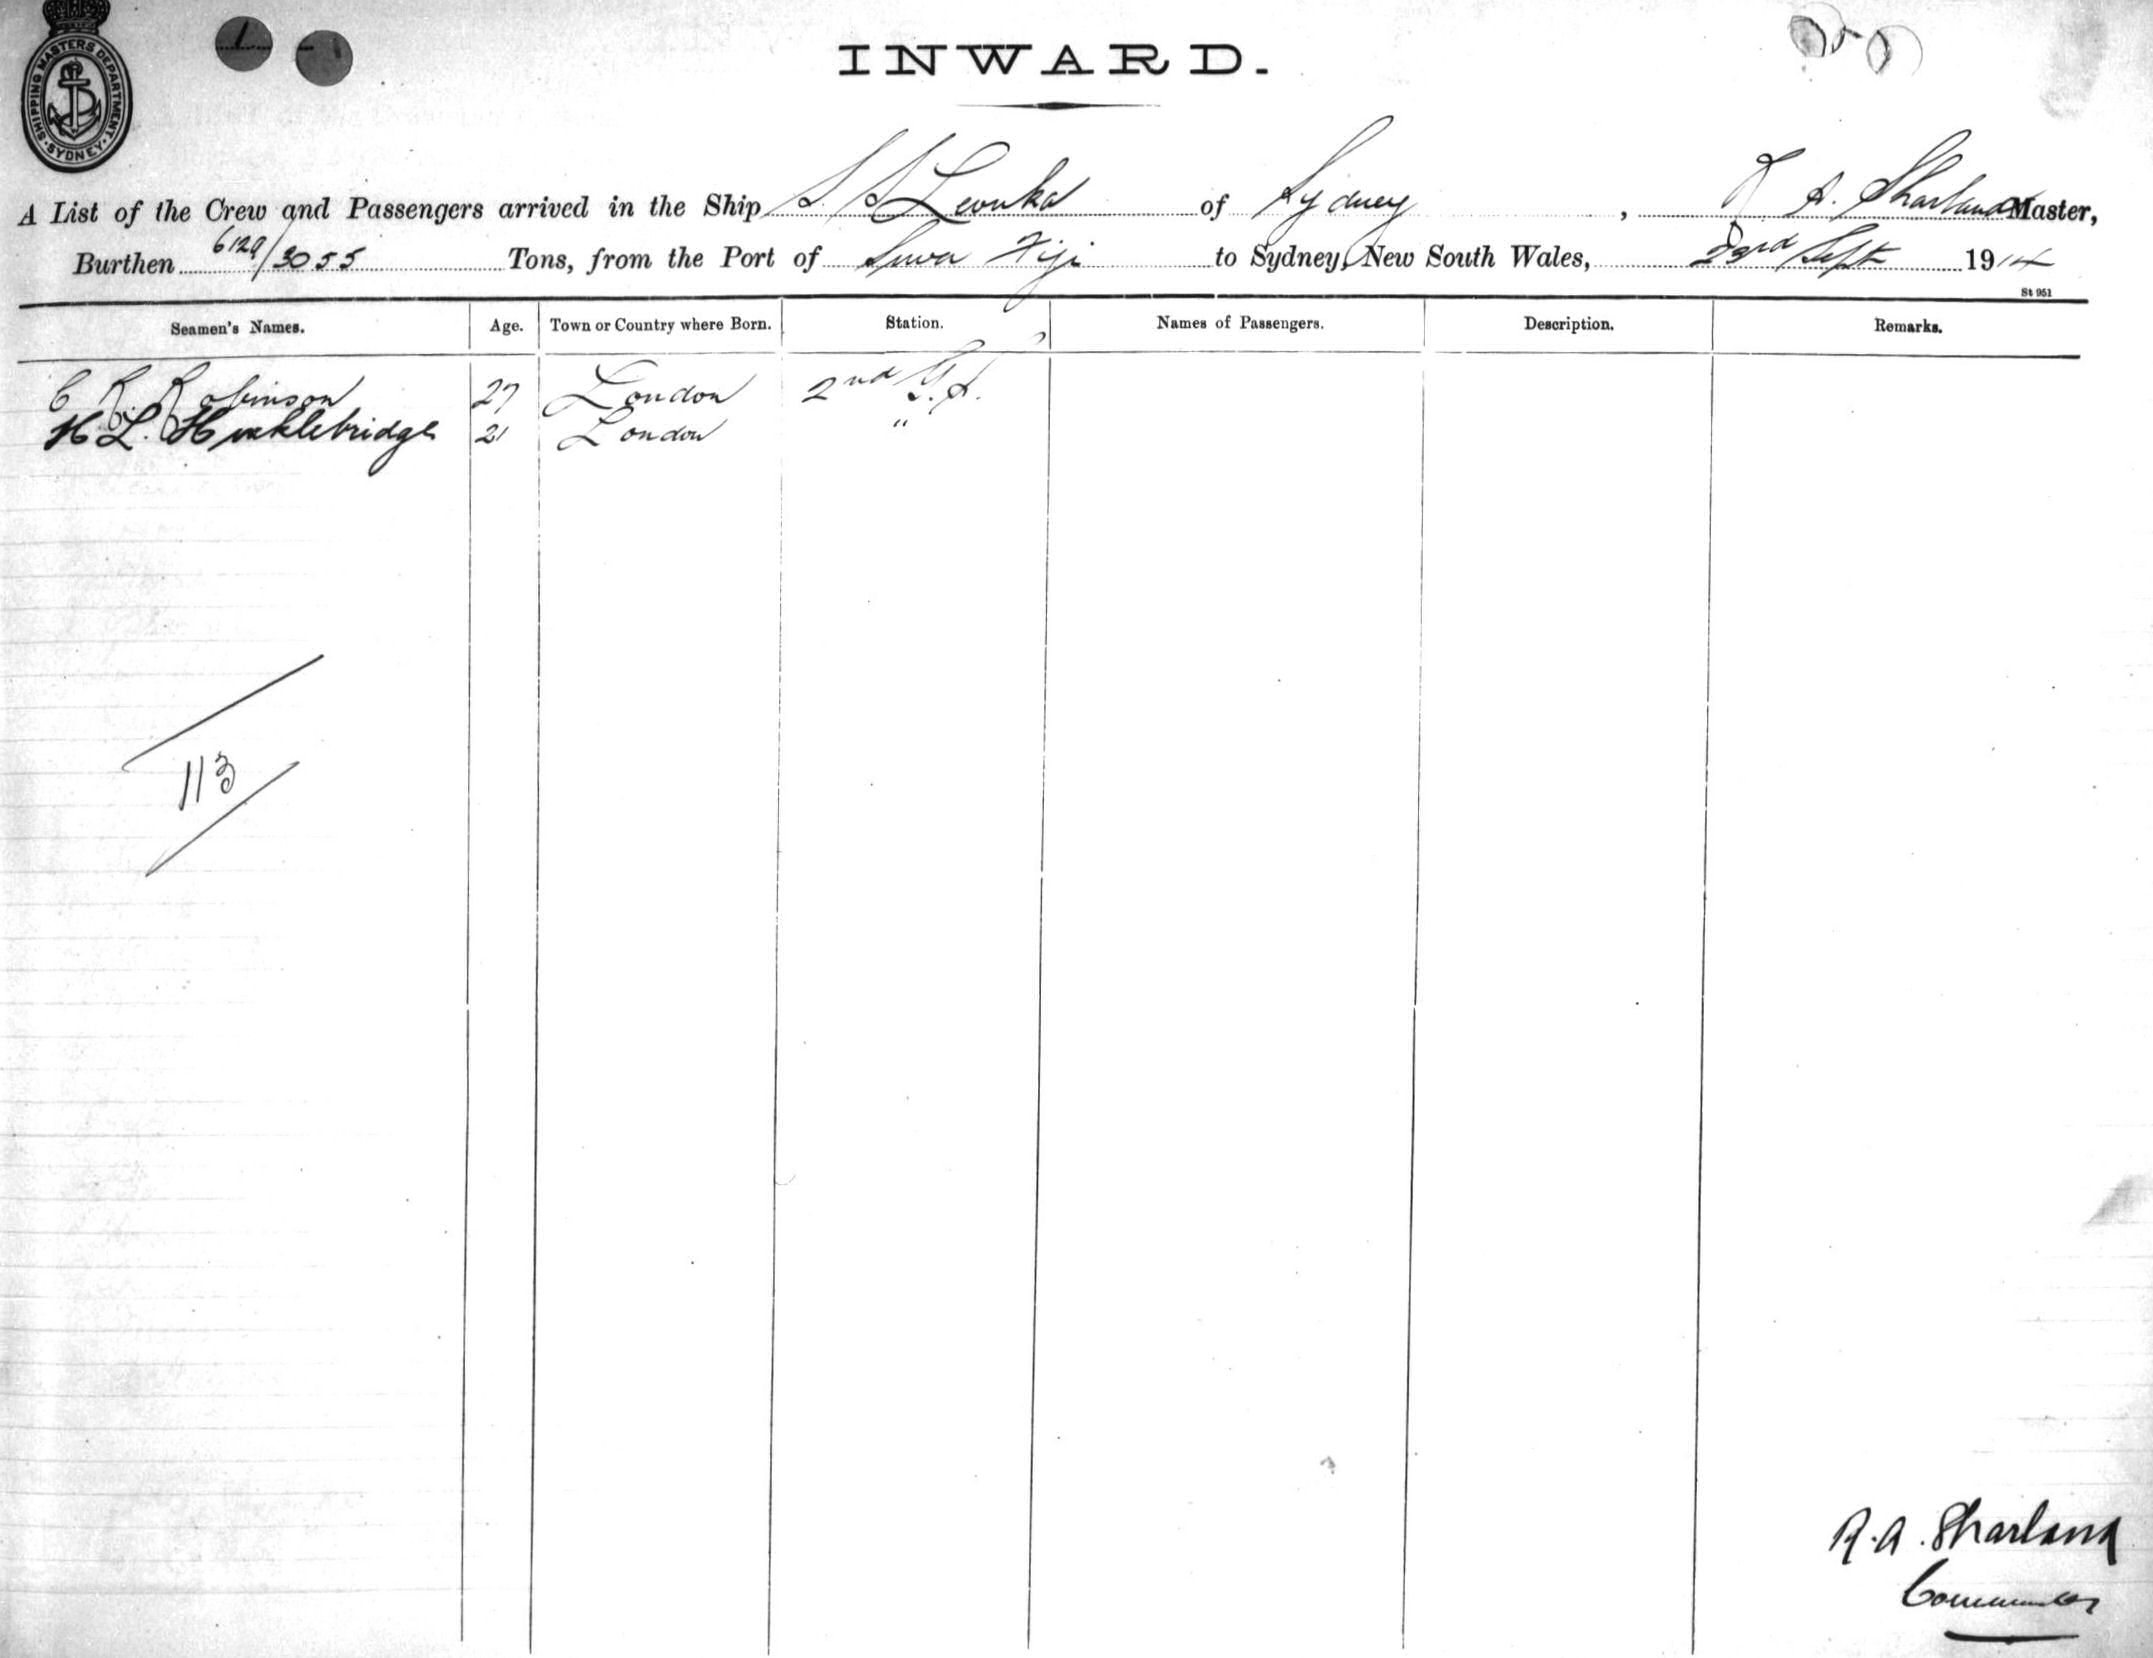 SHIPPING MASTERS DEPARTMENT
SYDNEY
INWARD.
A List of the Crew and Passengers arrived in the Ship S S Levuka of Sydney, R A. Sharland Master,
Burthen 6129/3055 Tons, from the Port of Suva Fiji to Sydney, New South Wales, 23rd Sept 1914
St 951
Seamen's Names. Age. Town or Country where Born. Station. Names of Passengers. Description. Remarks.
C R. Robinson 27 London 2nd
H. L. Hucklebridge 21 London "
113
R. A. Sharland
Commander